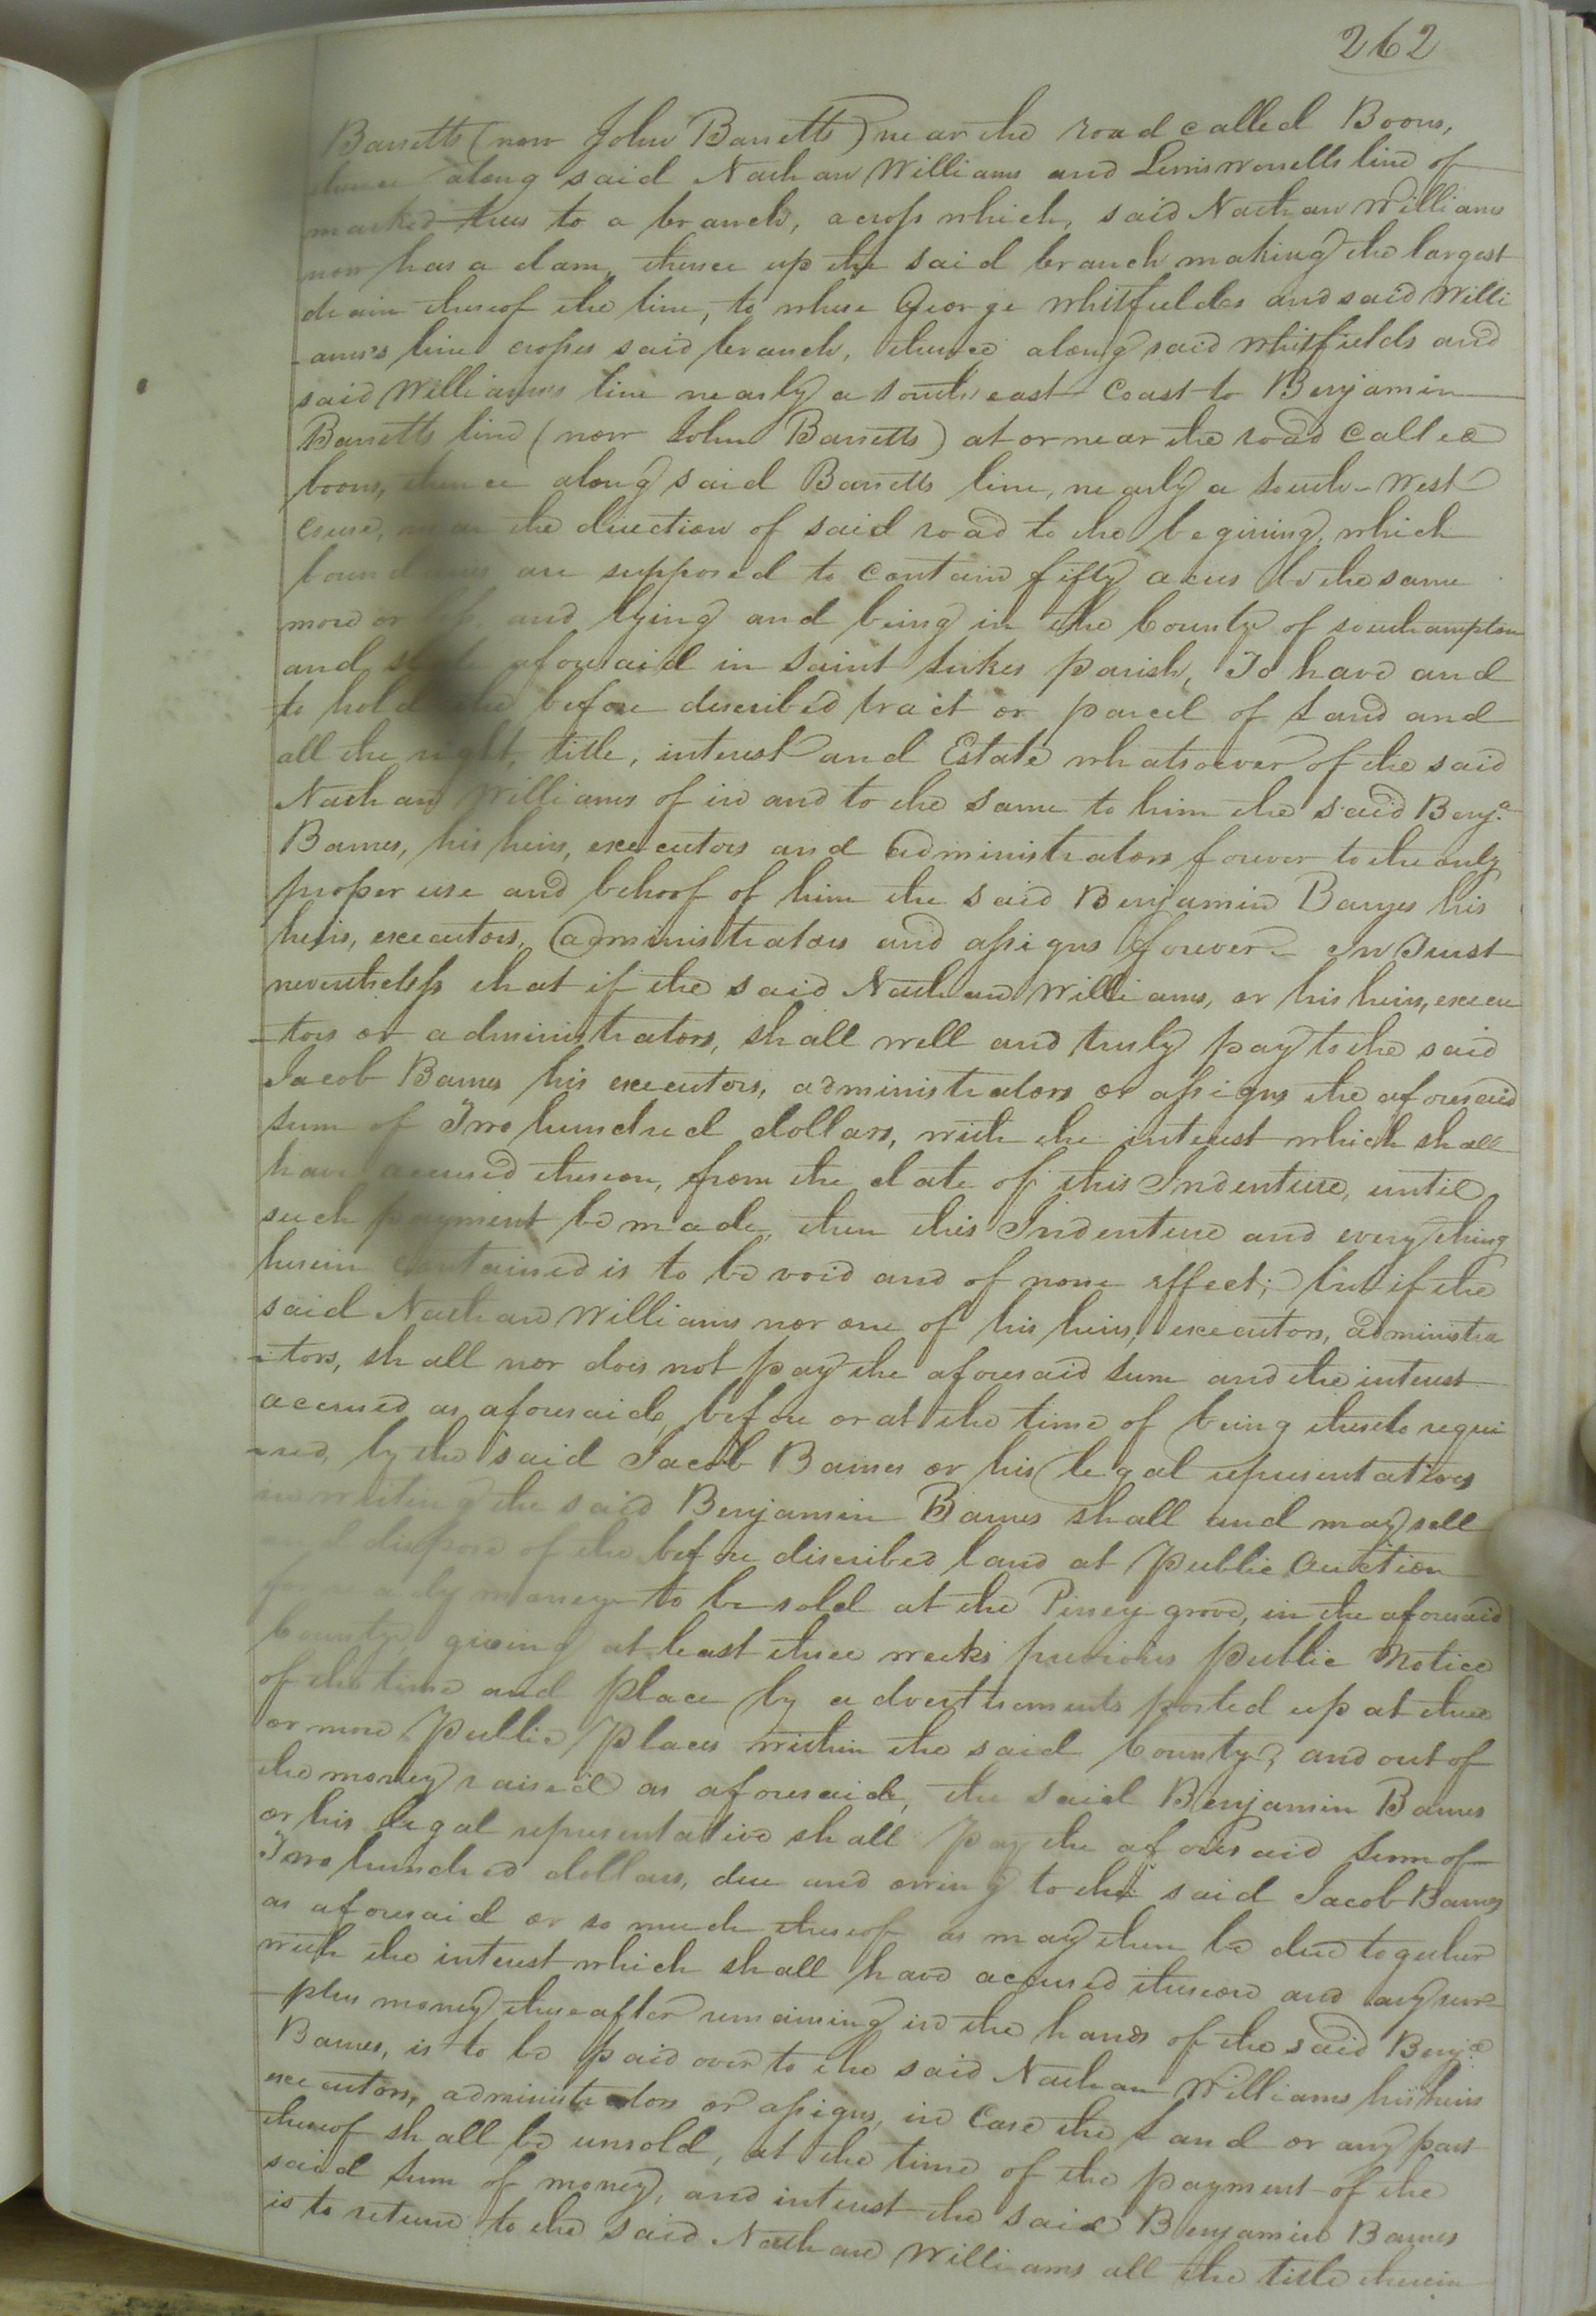 262
Barretts (now John Barretts) near the road called Boons,
thence along said Nathan Williams and Lewis Worrells line of
marked trees to a branch, across which, said Nathan Williams
now has a dam, thence up the said branch making the largest
drain thereof the line, to where George Whitfieldes and said Willi
-ams's line crosses said branch, thence along said Whitfields and
said Williams's line nearly a south east Coast to Benjamin
Barretts line (now John Barretts) at or near the road Called
boons, thence along said Barretts line, nearly a South-West
course, near the direction of said road to the begining, which
boundaries are supposed to contain fifty acres be the same
more or less, and lying and being in the County of Southampton
and state aforesaid in Saint Lukes parish, To have and
to hold the before described tract or parcel of Land and
all the right, title, interest and Estate whatsoever of the said
Nathan Williams of in and to the same to him the said Benja.
Barnes, his heirs, executors and administrators forever to the only
proper use and behoof of him the said Benjamin Barnes his
heirs, executors, administrators and assigns forever - In Trust
nevertheless that if the said Nathan Williams, or his heirs, execu
-tors or administrators, shall well and truly pay to the said
Jacob Barnes his executors, administrators or assigns the aforesaid
sum of Two hundred dollars, with the interest which shall
have accrued thereon, from the date of this Indenture, until
such payment be made, then this Indenture and every thing
herein contained is to be void and of none effect; but if the
said Nathan Williams nor one of his heirs, executors, administra
-tors, shall nor does not pay the aforesaid sum and the interest
accrued as aforesaid, before or at the time of being thereto requi
-red, by the said Jacob Barnes or his legal representatives
in writing the said Benjamin Barnes shall and may sell
and dispose of the before discribed land at Public Auction
for ready money to be sold at the Piney grove, in the aforesaid
County, giving at least three weeks previous Public Notice
of the time and place by advertisements posted up at three
or more Public Places within the said County, and out of
the money raised as aforesaid, the said Benjamin Barnes
or his legal representative shall pay the aforesaid sum of
Two hundred dollars, due and owing to the said Jacob Barnes
as aforesaid or so much thereof as may then be due together
with the interest which shall have accrued thereon and any sur-
-plus money thereafter remaining in the hands of the said Benja.
Barnes, is to be paid over to the said Nathan Williams his heirs
executors, administrators or assigns, in Case the Land or any part
thereof shall be unsold, at the time of the payment of the
said sum of money, and interest the said Benjamin Barnes
is to return to the said Nathan Williams all the title therein